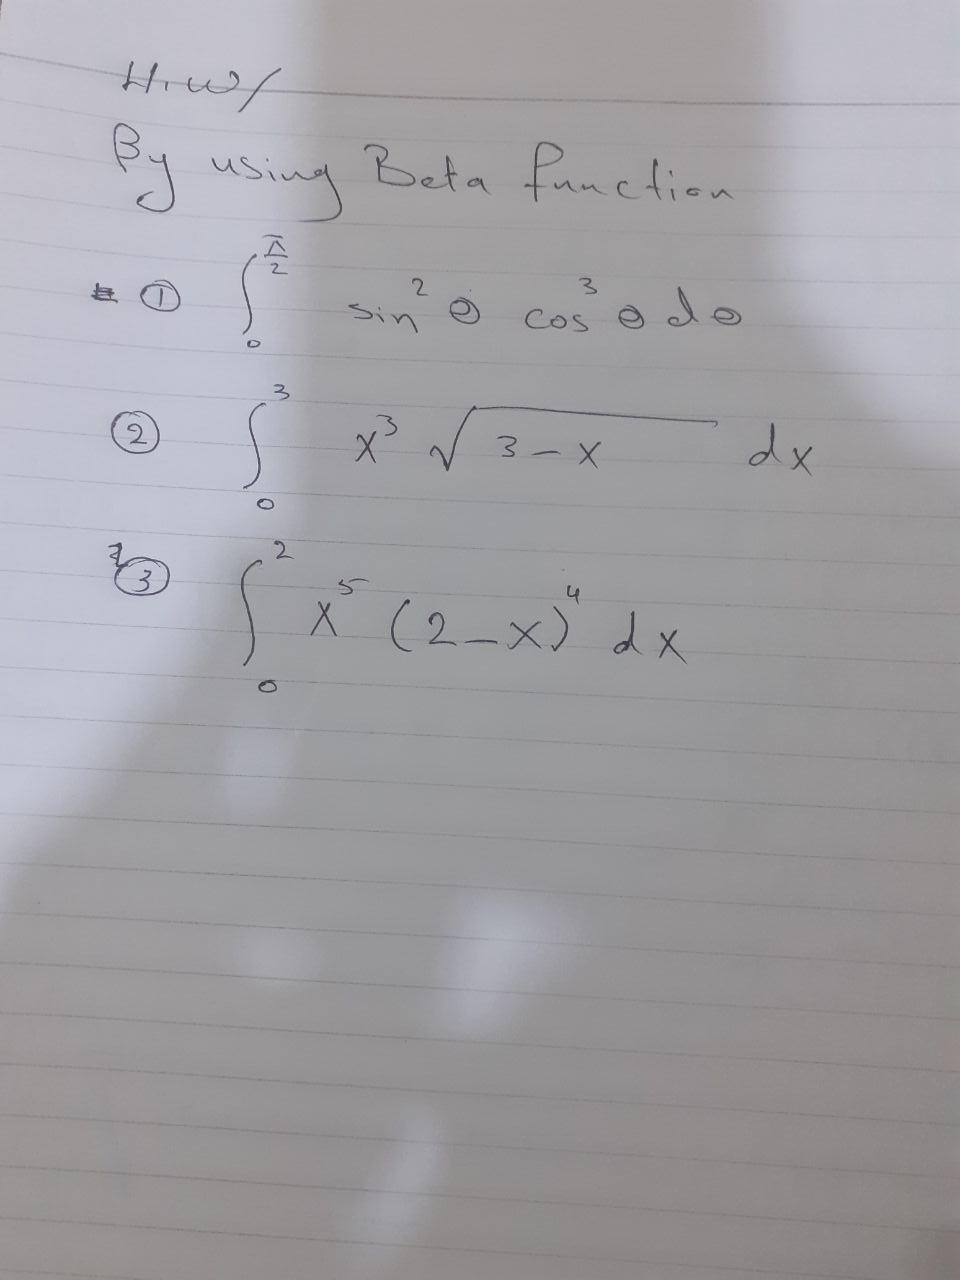 H.W/
By using Beta function
① ∫₀^(π/2) sin² θ cos³ θ dθ
② ∫₀³ x³ √(3-x) dx
③ ∫₀² x⁵ (2-x)⁴ dx